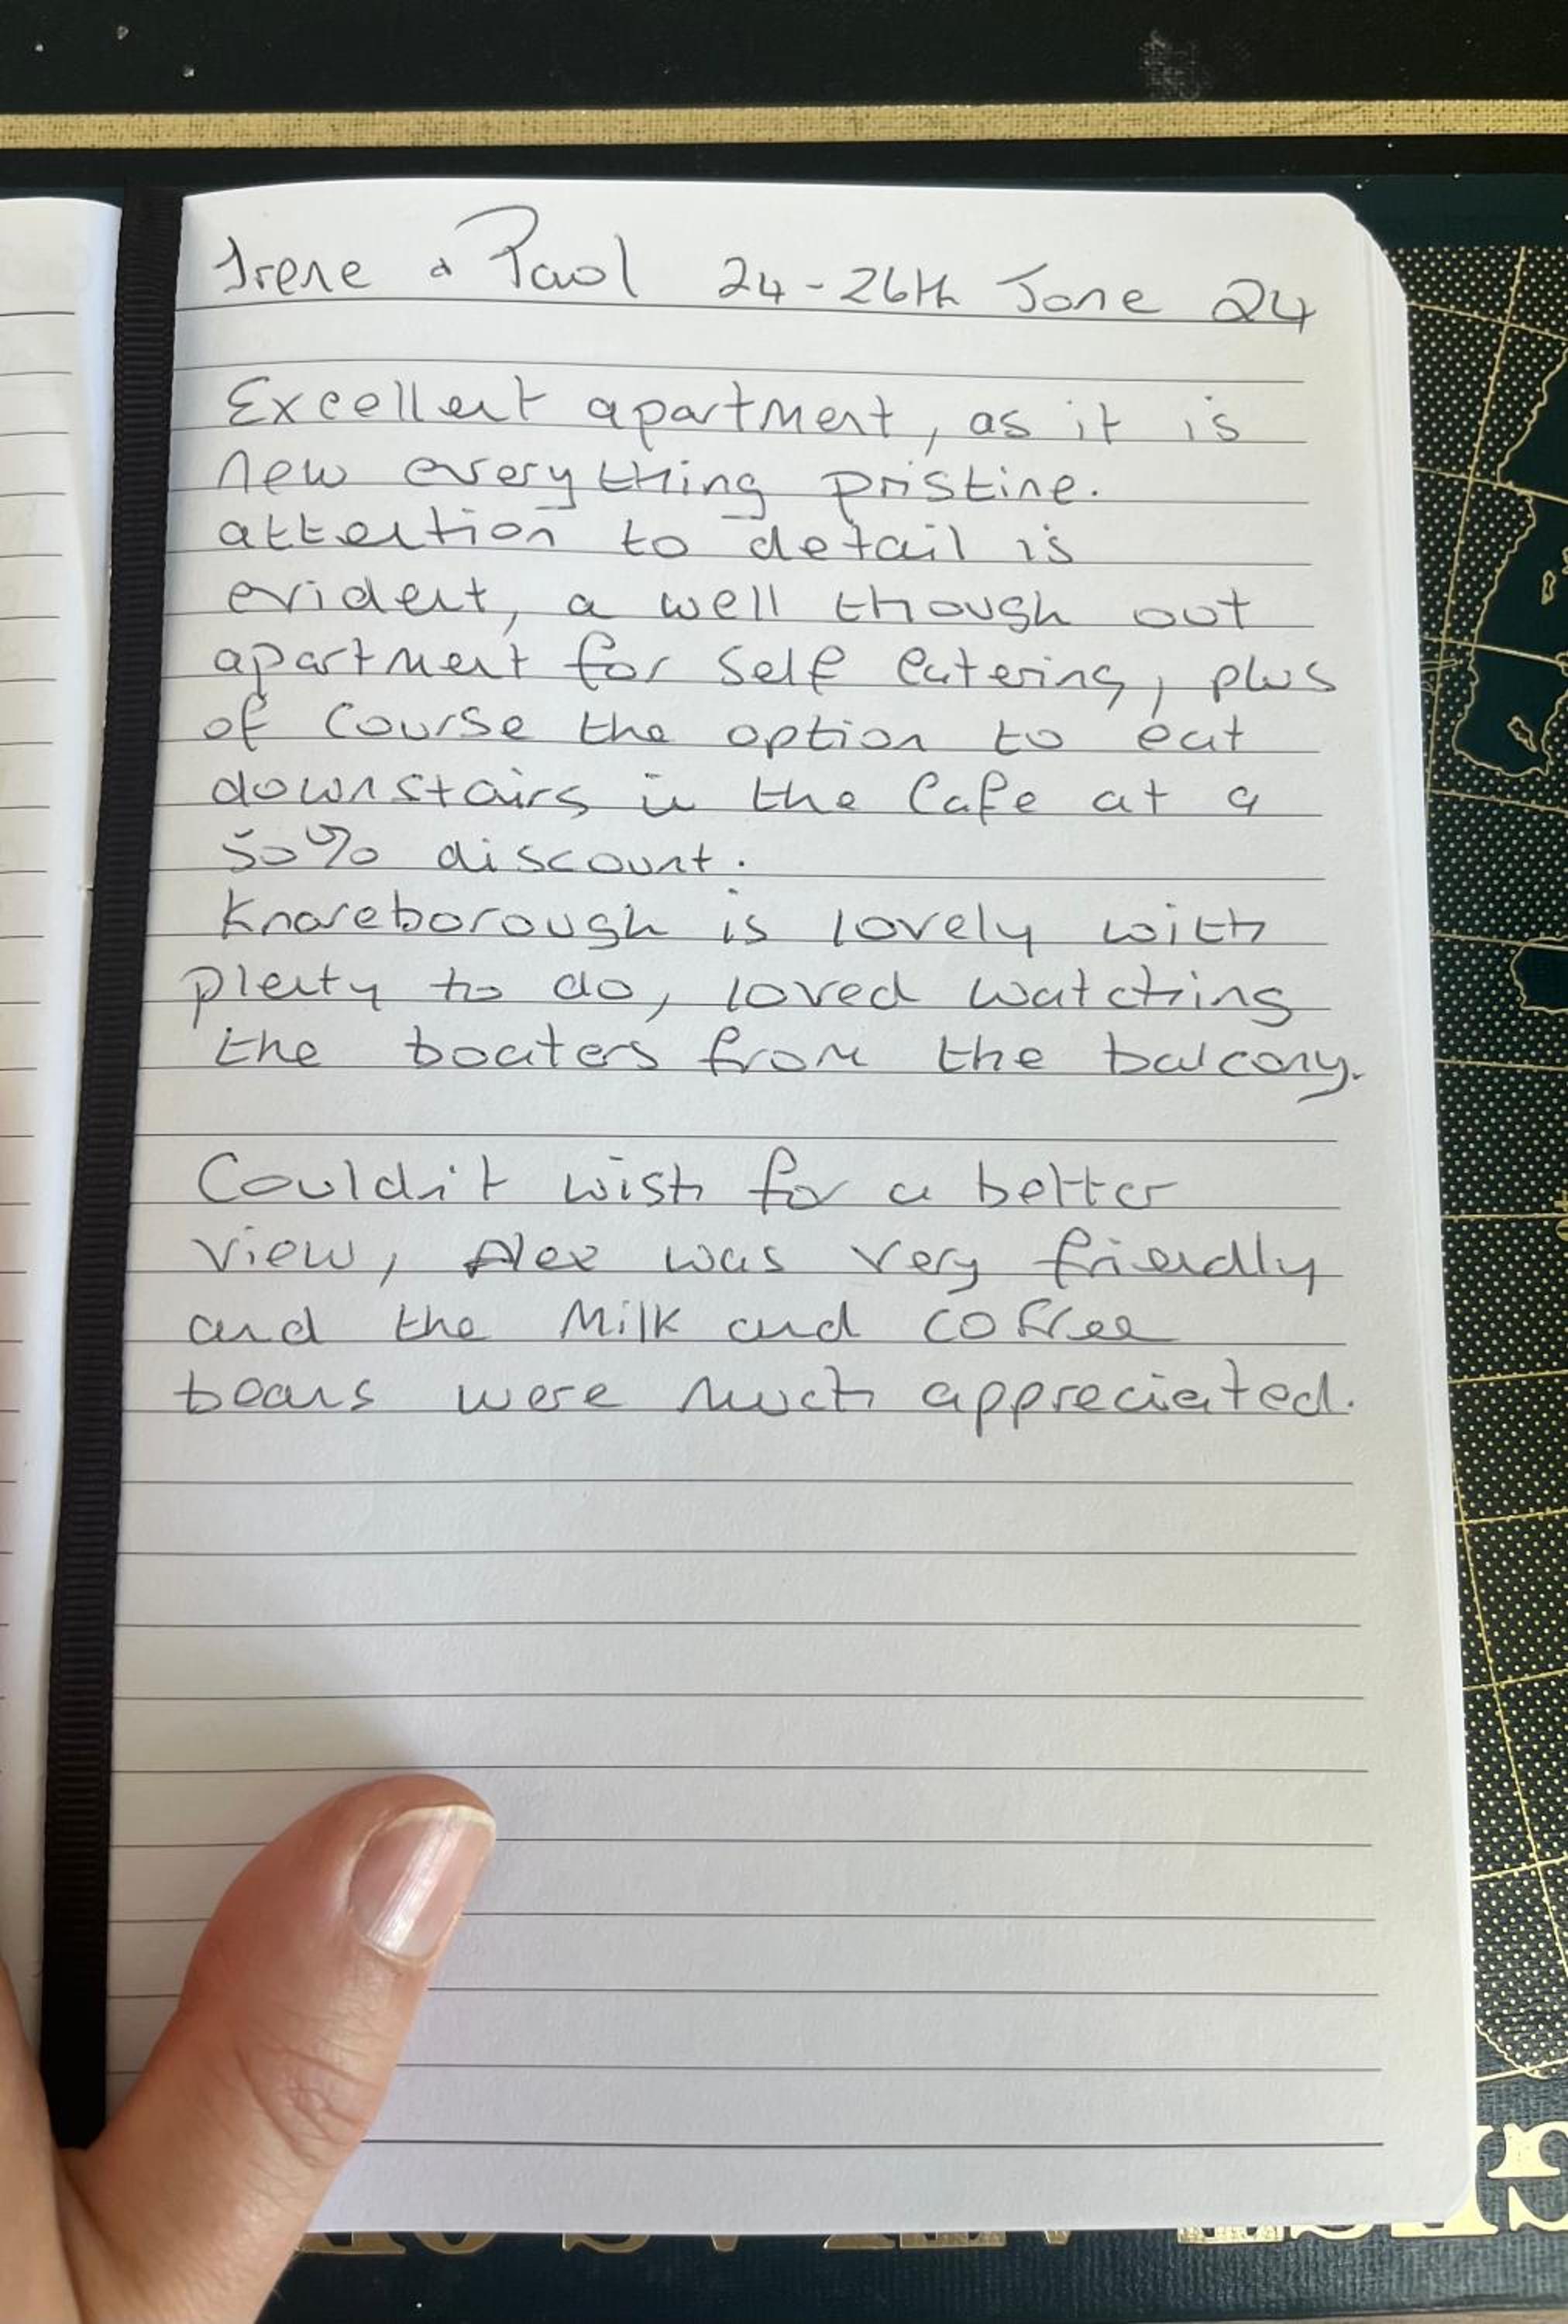 Irene & Paul 24-26th June 24
Excellent apartment, as it is
new everything pristine.
attention to detail is
evident, a well though out
apartment for self catering, plus
of course the option to eat
downstairs in the Cafe at a
50% discount.
Knareborough is lovely with
plenty to do, loved watching
the boaters from the balcony.
Couldn't wish for a better
view, Alex was very friendly
and the Milk and coffee
beans were much appreciated.